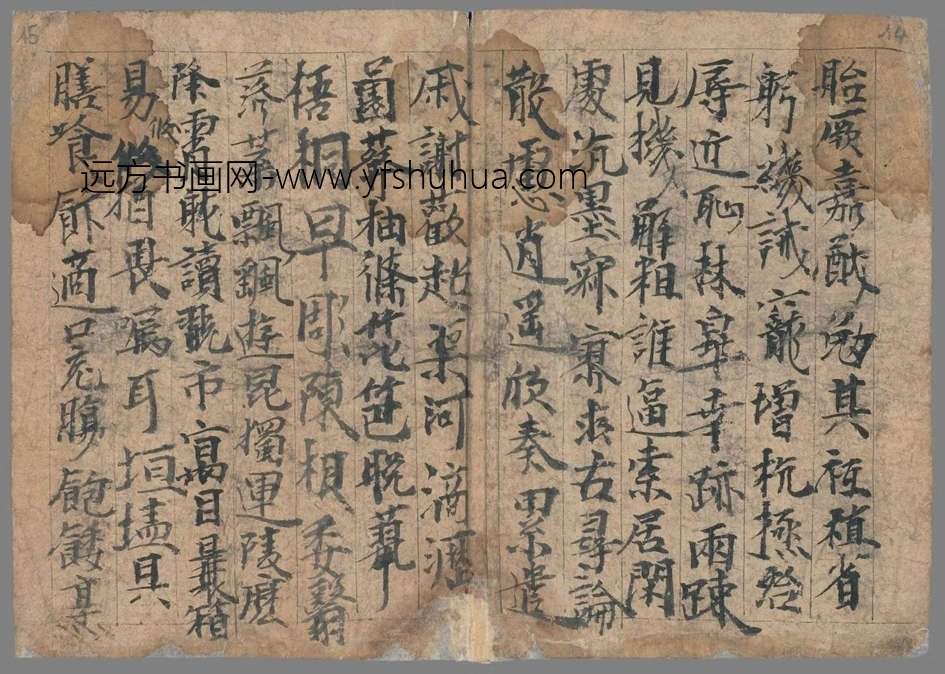 15
14
胎厥嘉猷勉其祗植省
躬譏誡寵增抗極殆
辱近恥林皋幸跡兩疎
見機解相誰逼索居閑
處沉墨寂寥求古尋論
散慮逍遥欣奏累遣
戚謝歡超渠河滴瀝
薗莽抽條花笆晚翠
梧桐早彫陳根委翳
落葉飄颻遊昆獨運陵磨
降霄耽讀翫市寓目囊箱
易攸猶畏囑耳垣墻具
膳飡飰適口充腸飽飫烹
远方书画网-www.yfshuhua.com